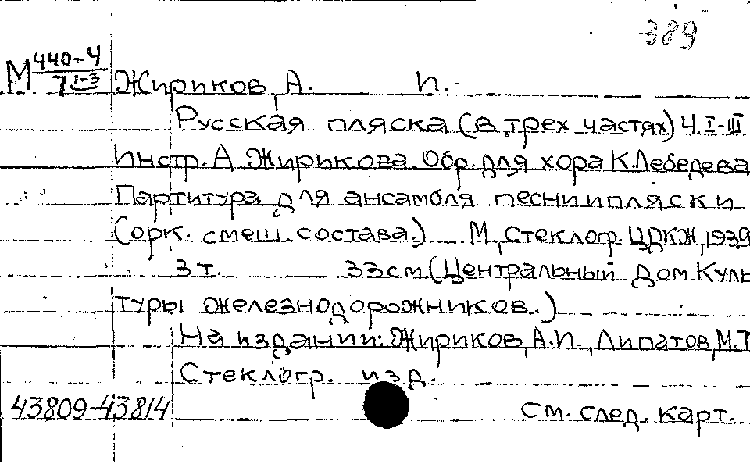 389
М 440-4 Жириков, А. И.
7 I-3
Русская пляска (в трех частях) Ч. I-III
Инстр. А. Жирикова. Обр. для хора К. Лебедева
Партитура для ансамбля песни и пляски
(орк. смеш. состава.) М., Стеклогр. ЦДКЖ, 1939
3 т. 33 см (Центральный Дом Куль
туры железнодорожников.)
На издании: Жириков, А.И., Липатов, М.Т
Стеклогр. изд.
43809-43814 См. след. карт.